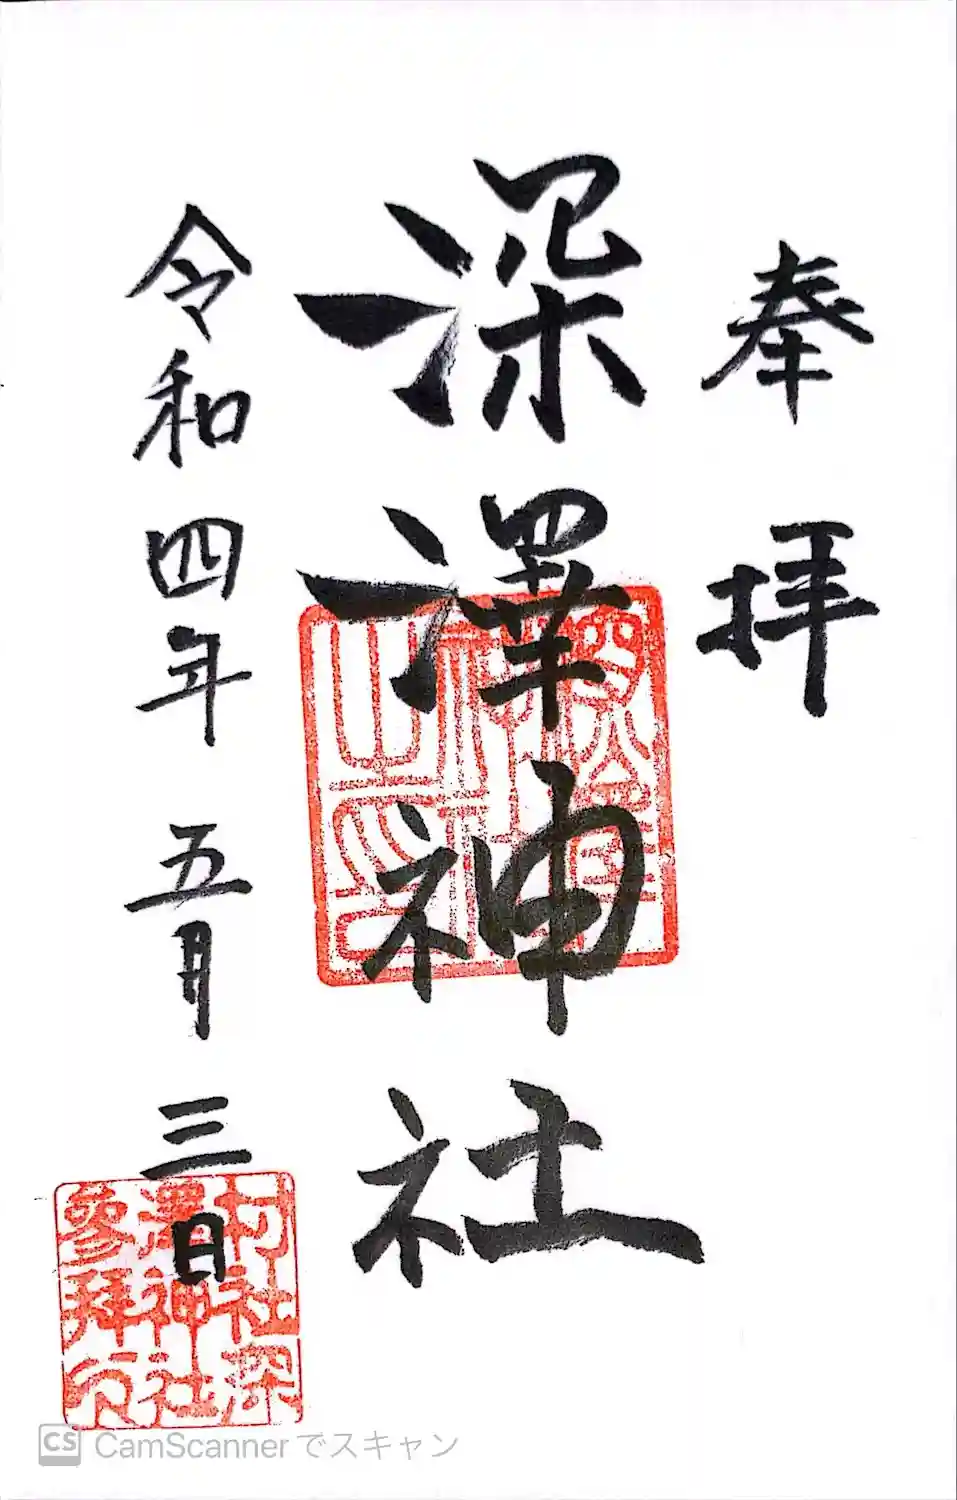 奉拝
深澤神社
令和四年五月三日
村社深
澤神社
参拝
CS CamScannerでスキャン